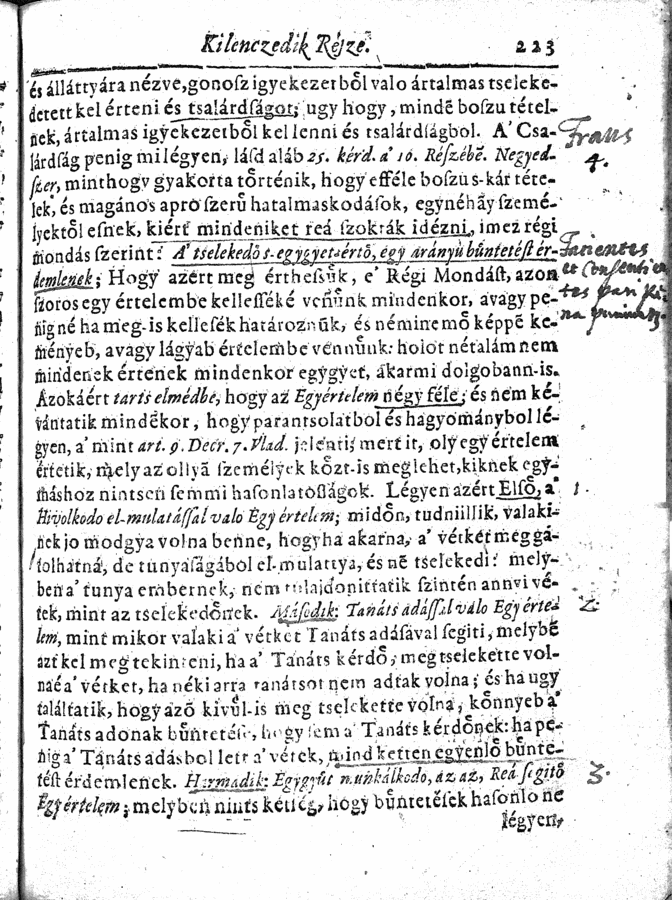 Kilenczedik Része. 223
és álláttyára nézve, gonosz igyekezetből valo ártalmas tseleke-
detett kel érteni és tsalárdságot; ugy hogy, mindē boszu tétel-
nek, ártalmas igyekezetből kel lenni és tsalárdságbol. A' Csa-
lárdság penig mi légyen, lásd aláb 25. kérd. a' 10. Részébē. Negyed-
szer, minthogy gyakorta tőrténik, hogy efféle boszus-kár téte-
lek, és magános apro szerű hatalmaskodások, egynéhãy szemé-
lyektől esnek, kiért mindeniket reá szokták idézni, imez régi
mondás szerint: A' tselekedő s-egygyet-értő, egy arányu bűntetést ér-
demlenek; Hogy azért meg érthessűk, e' Régi Mondást, azon
szoros egy értelembe kellesséké vennűnk mindenkor, avagy pe-
nig né ha meg-is kellesék határoznūk, és némi nemő képpē ke-
ményeb, avagy lágyab értelembe vennűnk: holot nétalám nem
mindenek értenek mindenkor egygyet, akarmi dolgobann-is.
Azokáért tarts elmédbe, hogy az Egyértelem négy féle; és nem ké-
vántatik mindēkor, hogy parantsolatbol és hagyománybol lé-
gyen, a' mint art. 9. Decr. 7. Vlad. jelenti; mert it, oly egy értelem
értetik, mely az ollyā személyek kőzt-is meg lehet, kiknek egy-
máshoz nintsen semmi hasonlatosságok. Légyen azért Elsō, a'
Hivolkodo el-mulatással valo Egy értelem; midőn, tudniillik, valaki-
nek jo modgya volna benne, hogy ha akarna, a' vétket meg gá-
tolhatná, de tunyaságábol el-mulattya, és nē tselekedi: mely-
ben a' tunya embernek, nem tulajdonittatik szintén annyi vé-
tek, mint az tselekedőnek. Második: Tanáts adással valo Egy érte-
lem, mint mikor valaki a' vétket Tanáts adásával segiti, melybē
azt kel meg tekinteni, ha a' Tanáts kérdő, meg tselekette vol-
naé a' vétket, ha néki arra tanátsot nem adtak volna; és ha ugy
találtatik, hogy azō kivűl-is meg tselekette volna, kőnnyeb a'
Tanáts adonak bűntetése, hogy sem a' Tanáts kérdőnek: ha pe-
nig a' Tanáts adásbol lett a' vétek, mind ketten egyenlő bűnte-
tést érdemlenek. Harmadik: Egygyűt munkálkodo, az az, Reá segitő
Egy értelem; melyben nints kétség, hogy bűntetések hasonlo ne
légyen,
Fraus
4.
Facientes
et consentien
tes pari
1.
2.
3.